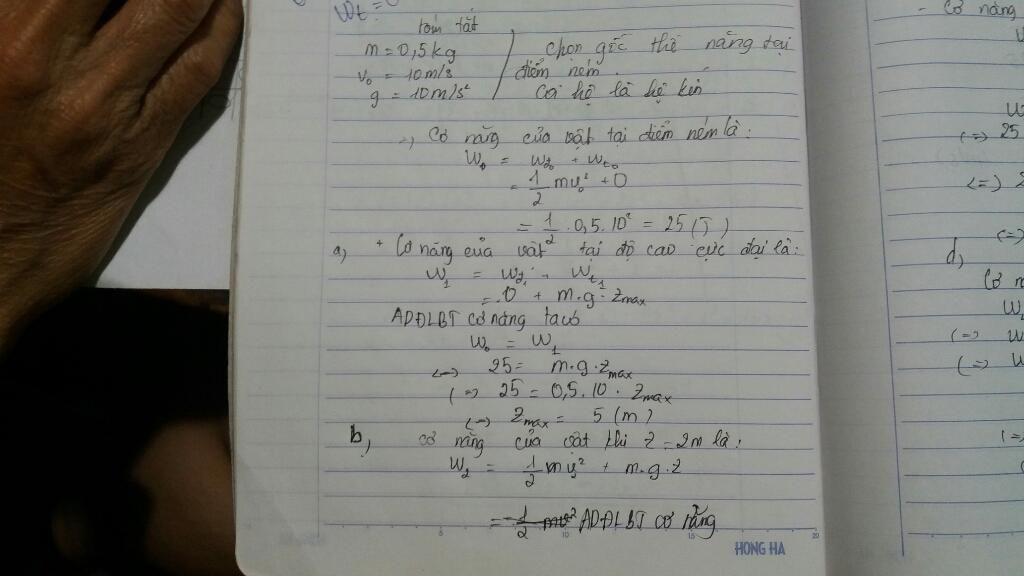 Wt =
tóm tắt
m = 0,5 kg / chọn gốc thế năng tại
v₀ = 10m/s điểm ném.
g = 10m/s² Coi hệ là hệ kín
=> Cơ năng của vật tại điểm ném là:
W₀ = Wđ₀ + Wt₀
= 1/2 mv₀² + 0
= 1/2 . 0,5. 10² = 25 (J)
a, + Cơ năng của vật tại độ cao cực đại là:
W₁ = Wđ₁ + Wt₁
= 0 + m.g.zmax
ADĐLBT cơ năng ta có
W₀ = W₁
<=> 25 = m.g.zmax
<=> 25 = 0,5.10 . zmax
<=> zmax = 5 (m)
b, cơ năng của vật khi z = 2m là:
W₂ = 1/2 mv₂² + m.g.z
= 1/2 mv² ADĐLBT cơ năng
5 10 15 20
HONG HA
- Cơ năng
W
<=> 25
<=>
<=>
d,
Cơ n
W
<=> W
<=> W
<=>